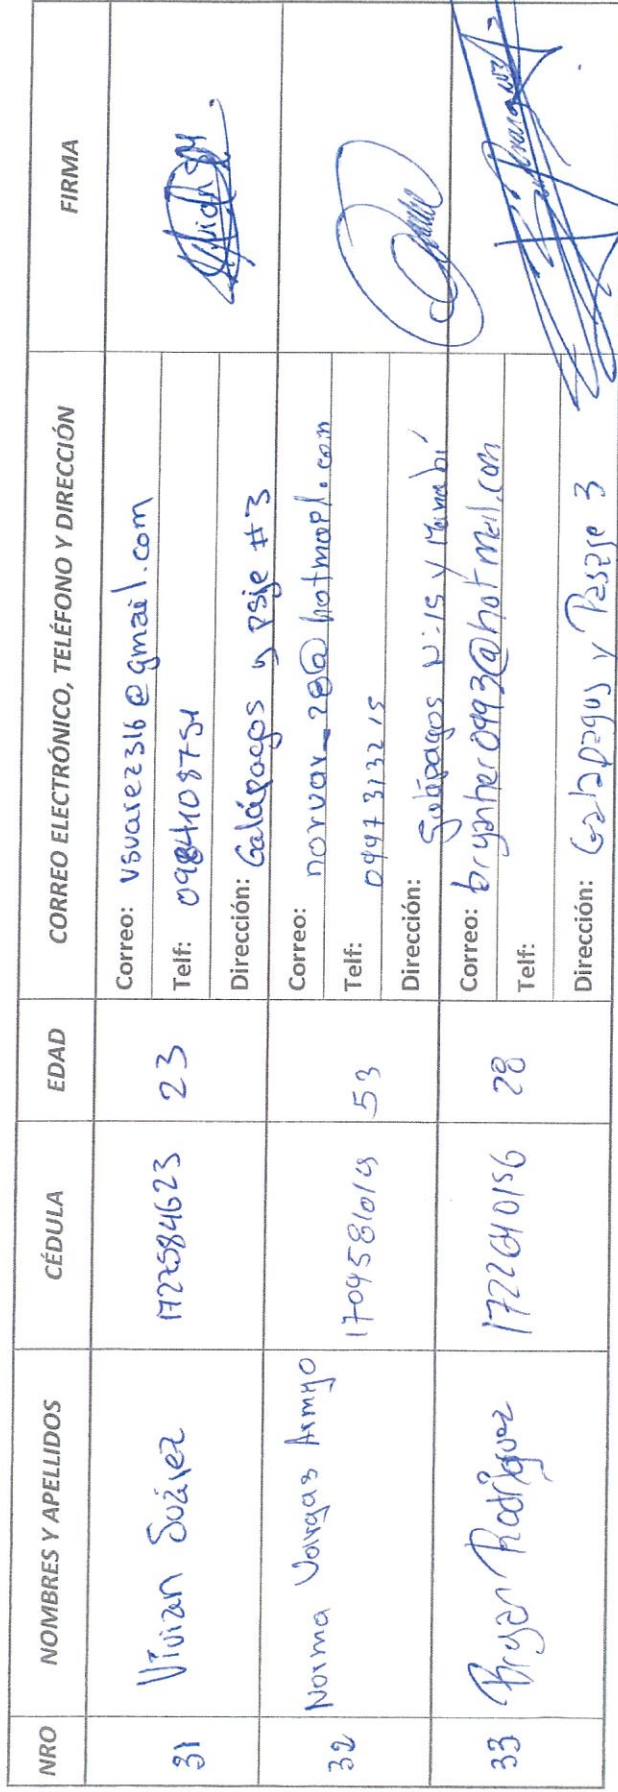 NRO NOMBRES Y APELLIDOS CÉDULA EDAD CORREO ELECTRÓNICO, TELÉFONO Y DIRECCIÓN FIRMA
31 Vivian Suárez 1727584623 23
Correo: vsuarez316@gmail.com
Telf: 0984108751
Dirección: Galápagos y psje #3
32 Norma Vargas Armijo 53
Correo: norvar_28@hotmail.com
Telf: 0997313215
Dirección: Galápagos N:15 y Manabí
33 Bryan Rodríguez 1722640156 28
Correo: bryanher0993@hotmail.com
Telf:
Dirección: Galapagos y Pasaje 3